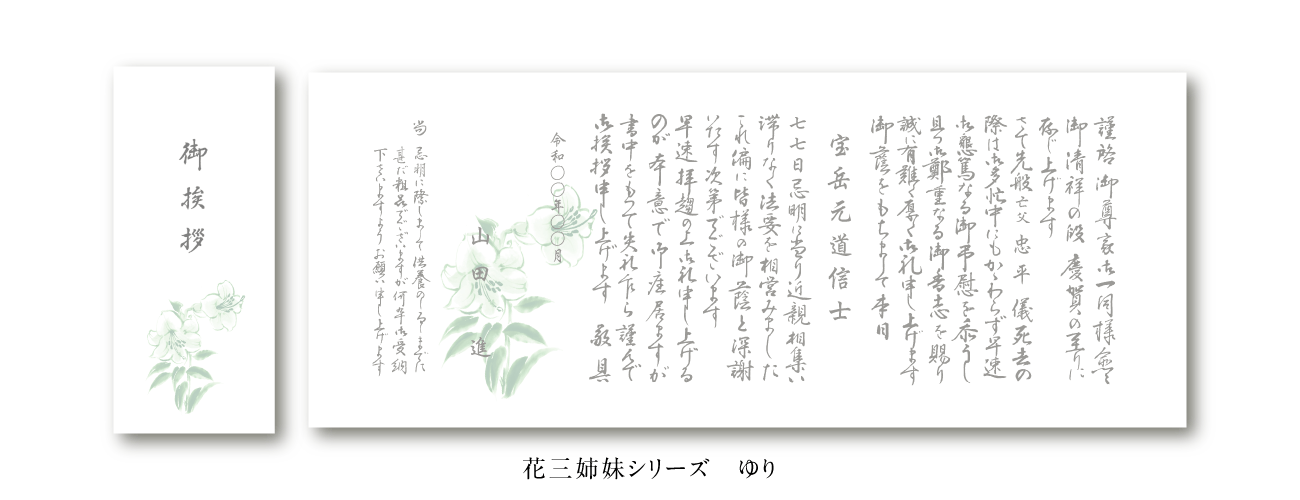 御挨拶
謹啓 御尊家御一同様愈々
御清祥の段 慶賀の至りに
存じ上げます
さて先般亡父 忠平 儀死去の
際は御多忙中にもかゝわらず早速
御懇篤なる御弔慰を忝うし
且つ御鄭重なる御香志を賜り
誠に有難く厚く御礼申し上げます
御蔭をもちまして本日
宝岳元道信士
七七日忌明に当り近親相集い
滞りなく法要を相営みました
これ偏に皆様の御蔭と深謝
いたす次第でございます
早速拝趨の上御礼申し上げる
のが本意で御座居ますが
書中をもって失礼乍ら謹んで
御挨拶申し上げます 敬具
令和〇〇年〇〇月
山田 進
尚 忌明に際しまして供養のしるしまでに
甚だ粗品でございますが何卒御受納
下さいますようお願い申し上げます
花三姉妹シリーズ ゆり